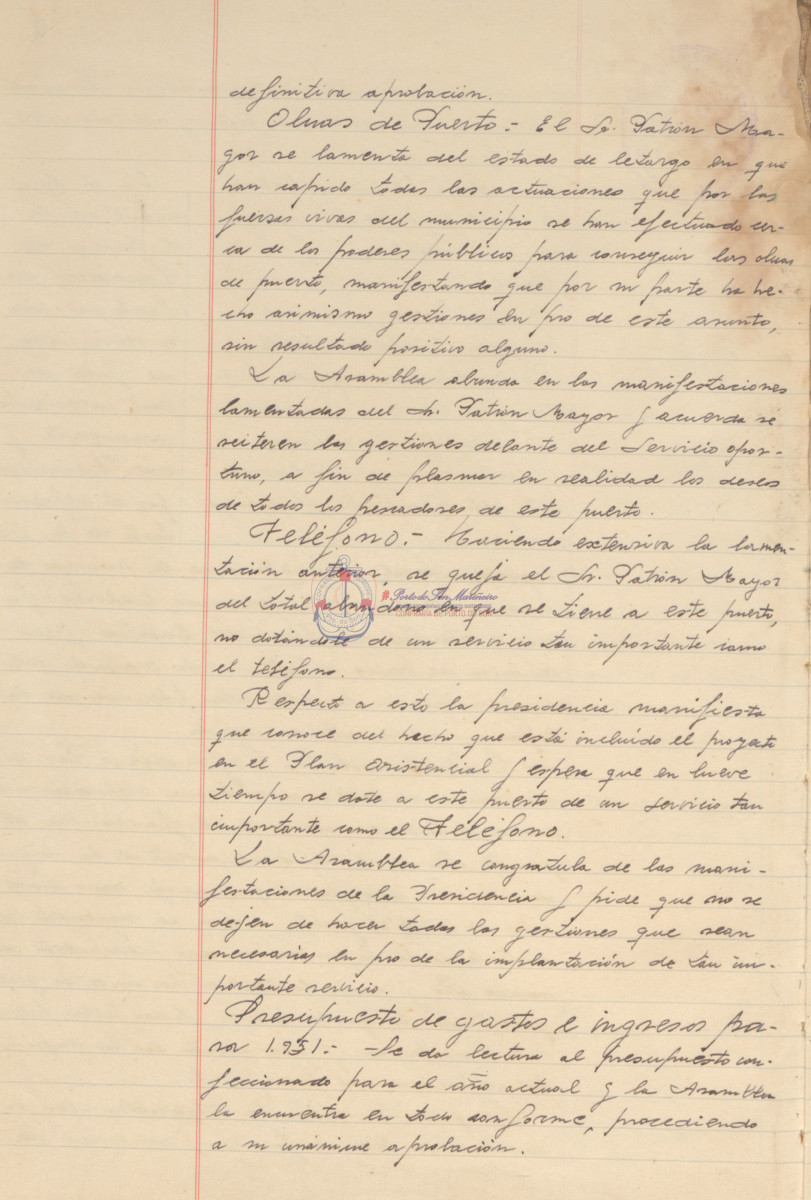 definitiva aprobación.
Obras de Puerto.- El Sr. Patrón Ma-
yor se lamenta del estado de letargo en que
han caido todas las actuaciones que por las
fuerzas vivas del municipio se han efectuado cer-
ca de los poderes públicos para conseguir las obras
de puerto, manifestando que por su parte ha he-
cho asimismo gestiones en pro de este asunto,
sin resultado positivo alguno.
La Asamblea abunda en las manifestaciones
lamentadas del Sr. Patrón Mayor y acuerda se
reiteren las gestiones delante del Servicio opor-
tuno, a fin de plasmar en realidad los deseos
de todos los pescadores de este puerto.
Teléfono.- Haciendo extensiva la lamen-
tación anterior, se queja el Sr. Patrón Mayor
del total abandono en que se tiene a este puerto,
no dotándole de un servicio tan importante como
el teléfono.
Respecto a esto la presidencia manifiesta
que conoce del hecho que está incluído el proyecto
en el Plan Asistencial y espera que en breve
tiempo se dote a este puerto de un servicio tan
importante como el Teléfono.
La Asamblea se congratula de las mani-
festaciones de la Presidencia y pide que no se
dejen de hacer todas las gestiones que sean
necesarias en pro de la implantación de tan im-
portante servicio.
Presupuesto de gastos e ingresos pa-
ra 1.951.- Se da lectura al presupuesto con-
feccionado para el año actual y la Asamblea
la encuentra en todo conforme, procediendo
a su unánime aprobación.
Porto de Son Mariñeiro